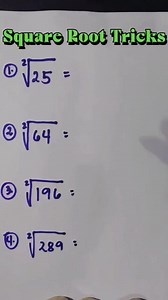 Square Root Tricks
① ²√25 =
② ²√64 =
③ ²√196 =
④ ²√289 =